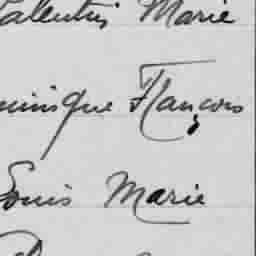 Valentin Marie
minique François
Louis Marie